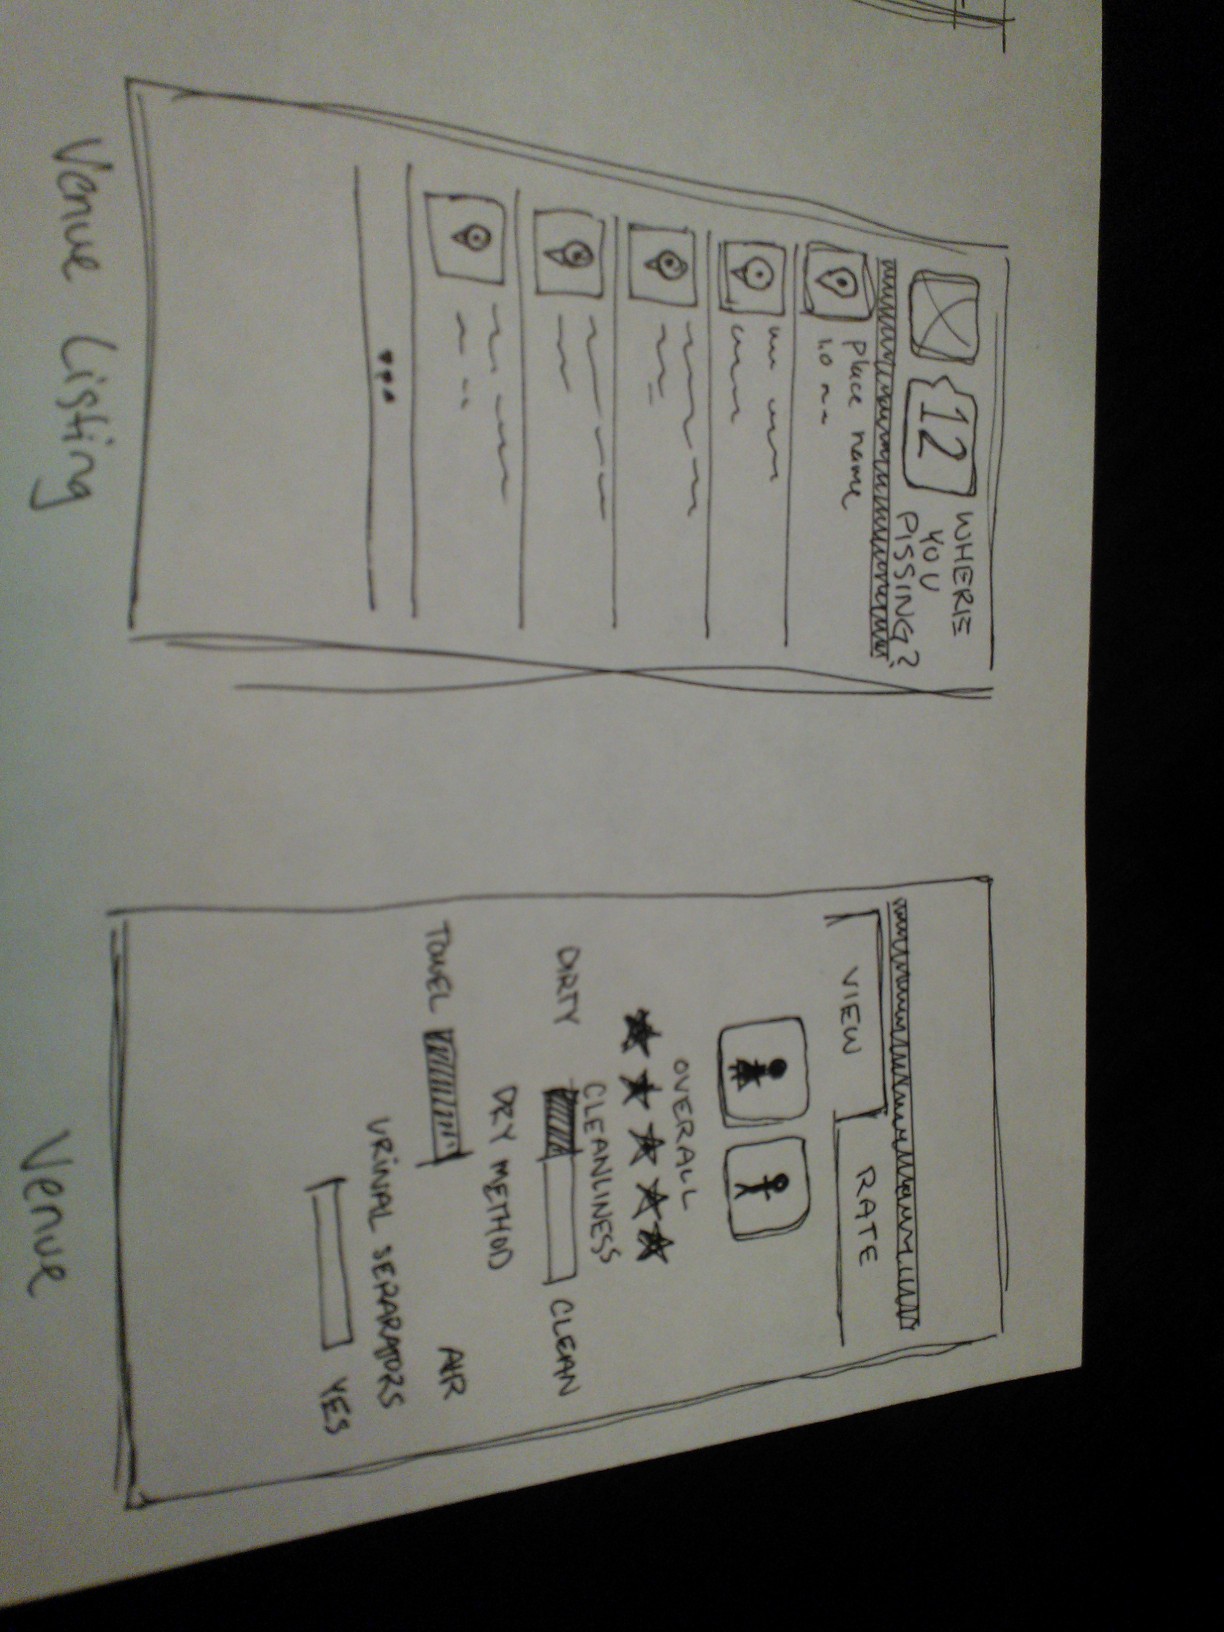 12
WHERE
YOU
PISSING?
place name
1.0
Venue Listing
VIEW
RATE
OVERALL
CLEANLINESS
DIRTY CLEAN
DRY METHOD
TOWEL AIR
URINAL SEPARATORS
YES
Venue